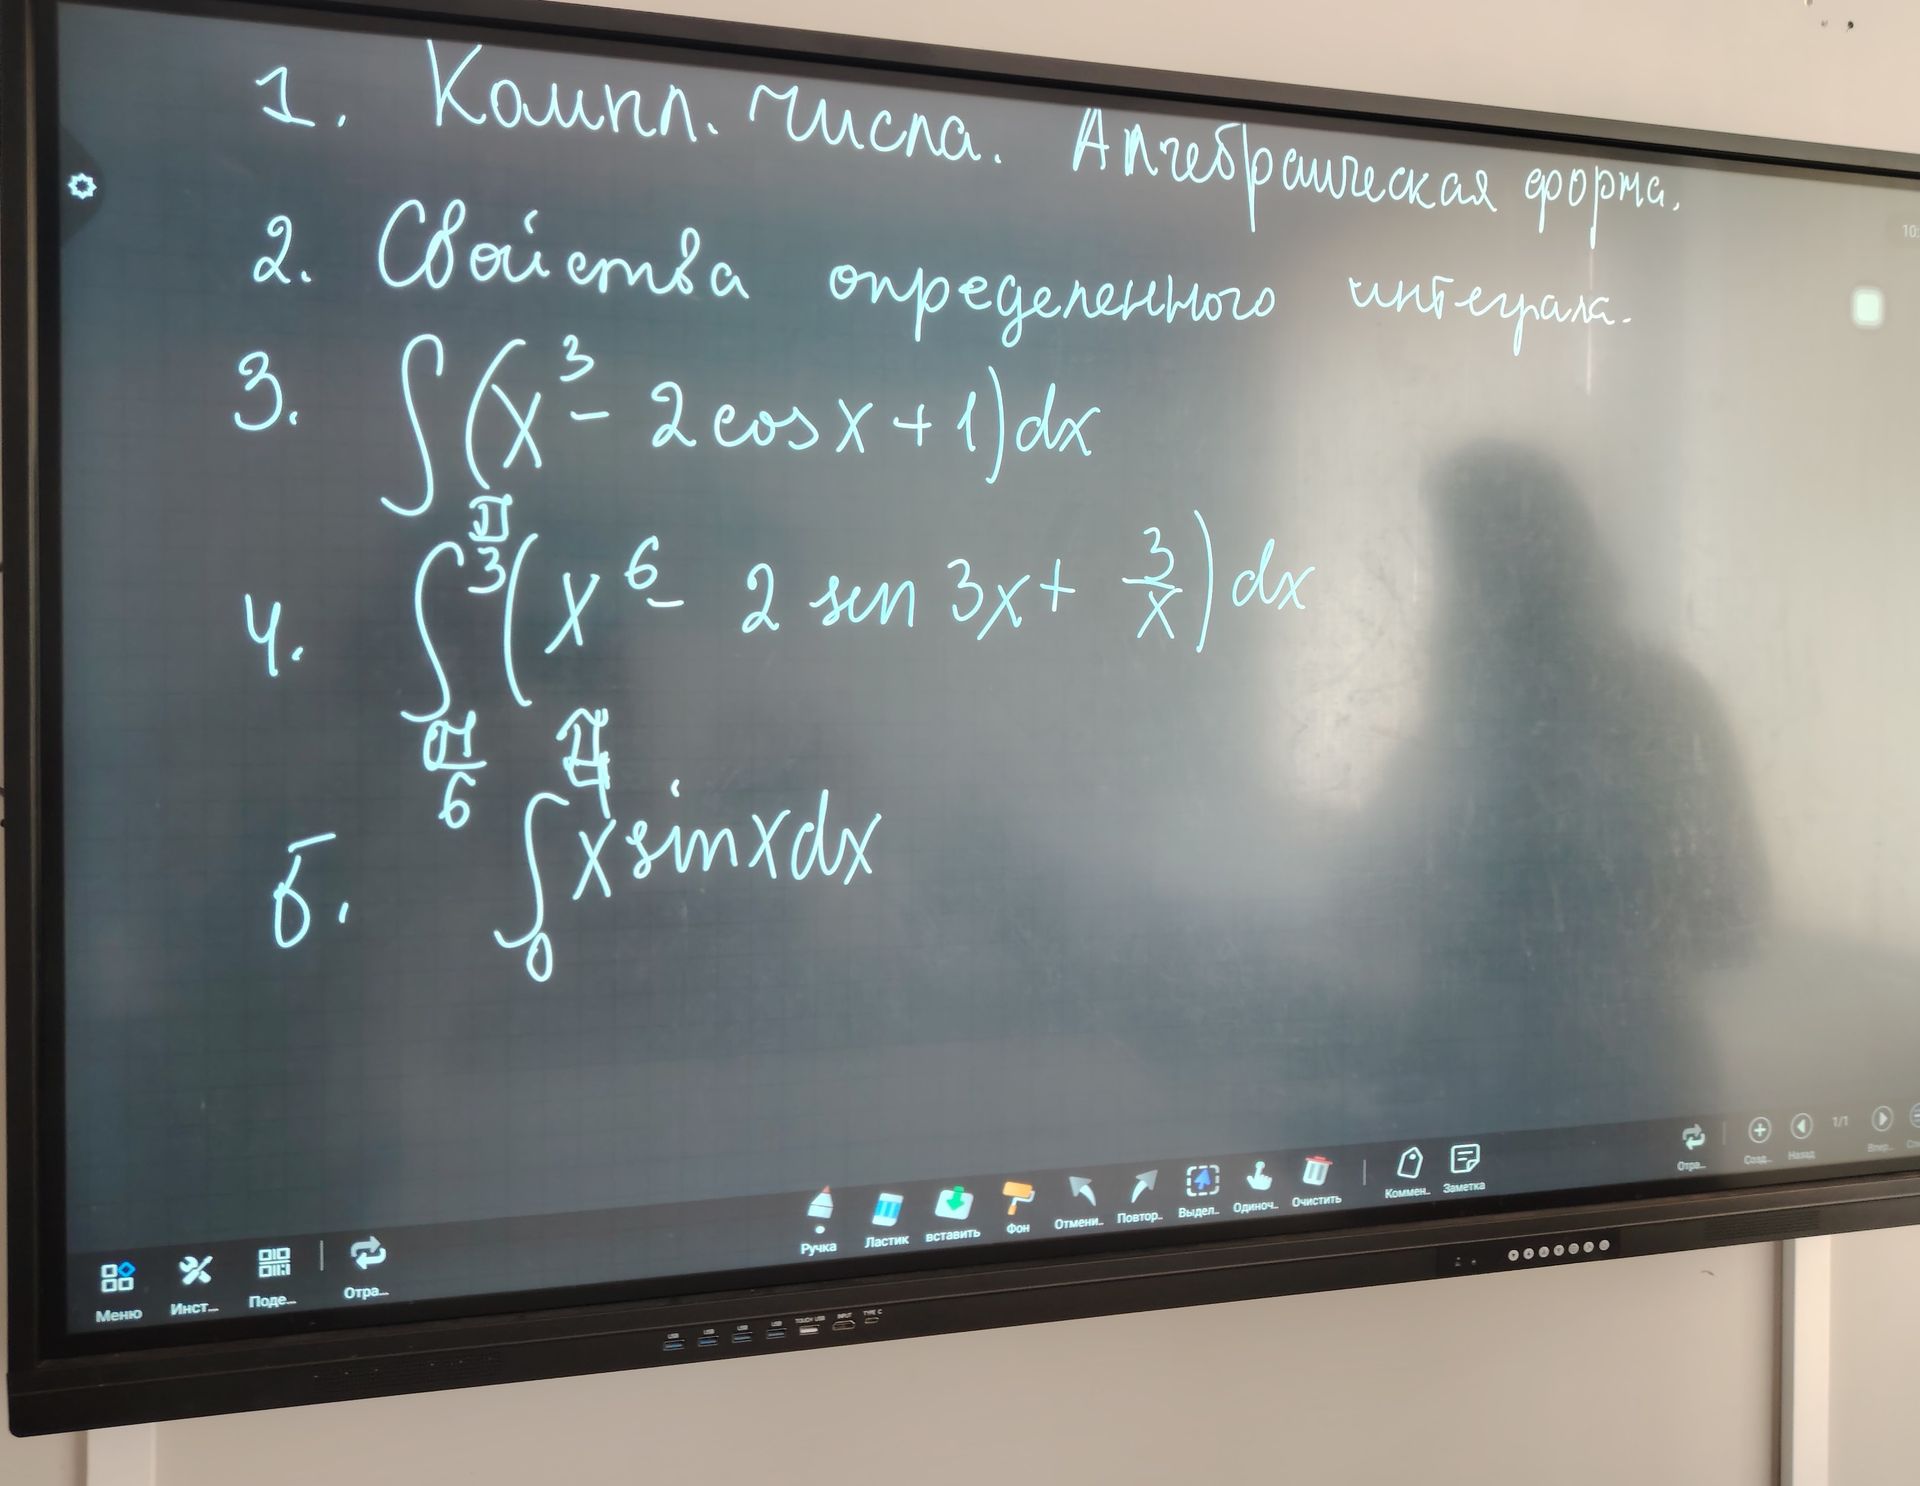 1. Компл. числа. Алгебраическая форма.
2. Свойства определенного интеграла.
3. ∫(x³ - 2cosx + 1)dx
4. ∫_{π/6}^{π/3}(x⁶ - 2 sin 3x + 3/x)dx
5. ∫_0^{π/4} x sinx dx
Ручка Ластик вставить Фон Отмени.. Повтор.. Выдел.. Одиноч.. Очистить Коммен.. Заметка Отра... Созд... Назад 1/1 Впер...
Меню Инст... Поде... Отра...
USB USB USB USB TOUCH USB INPUT TYPE C